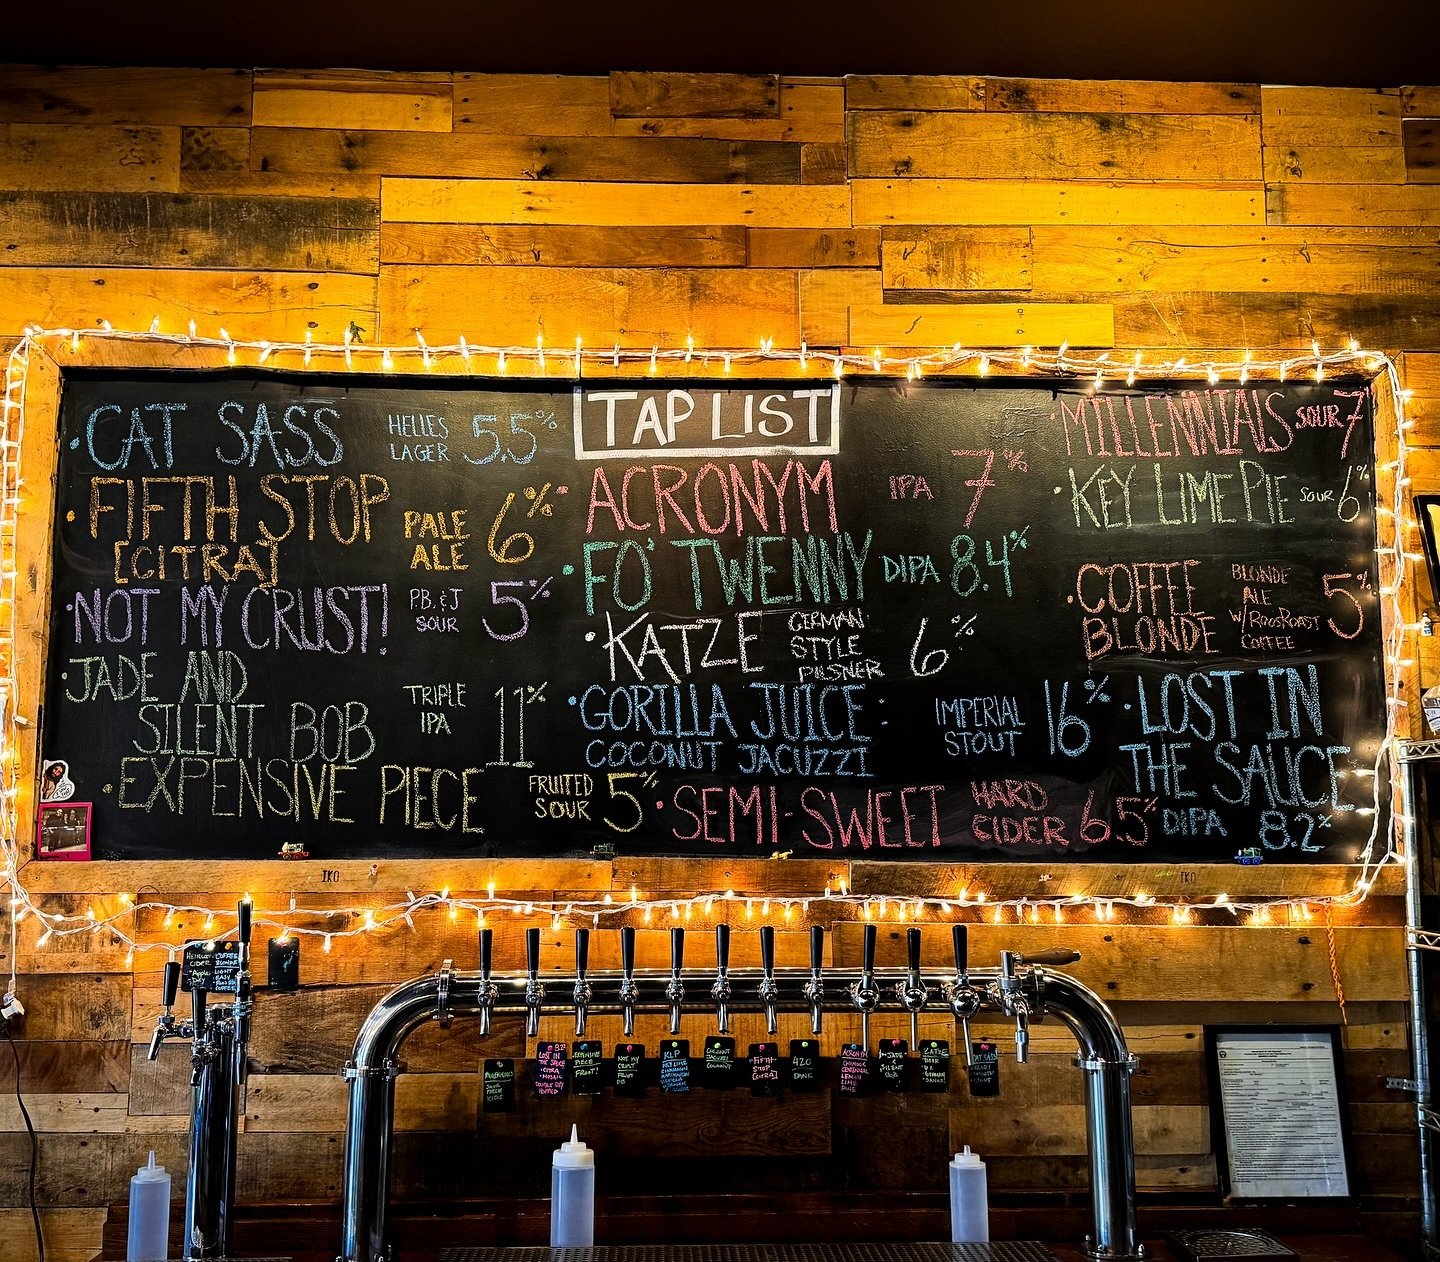 TAP LIST
·CAT SASS HELLES LAGER 5.5%
·FIFTH STOP [CITRA] PALE ALE 6%
·NOT MY CRUST! P.B. & J SOUR 5%
·JADE AND SILENT BOB TRIPLE IPA 11%
·EXPENSIVE PIECE FRUITED SOUR 5%
·ACRONYM IPA 7%
·FO' TWENNY DIPA 8.4%
·KATZE GERMAN STYLE PILSNER 6%
·GORILLA JUICE: COCONUT JACUZZI IMPERIAL STOUT 16%
·SEMI-SWEET HARD CIDER 6.5%
·MILLENNIALS SOUR 7
·KEY LIME PIE SOUR 6%
·COFFEE BLONDE BLONDE ALE W/ROOSROAST COFFEE 5%
·LOST IN THE SAUCE DIPA 8.2%
IKO
IKO
COFFEE
BLONDE
LIGHT
EASY
COFFEE
MILLENNIALS
SOUR
KIDS
LOST IN
THE SAUCE
CITRA
MOSAIC
EXPENSIVE
PIECE
FRUIT!
NOT MY
CRUST
FRUIT
PB
KLP
COCONUT
JACUZZI
COCONUT
FIFTH
STOP
[CITRA]
420
DANK
ACRONYM
CHINOOK
CENTENNIAL
LEMON
LIME
PINE
JADE
SILENT
BOB
KATZE
GERMAN
CAT SASS
LIGHT